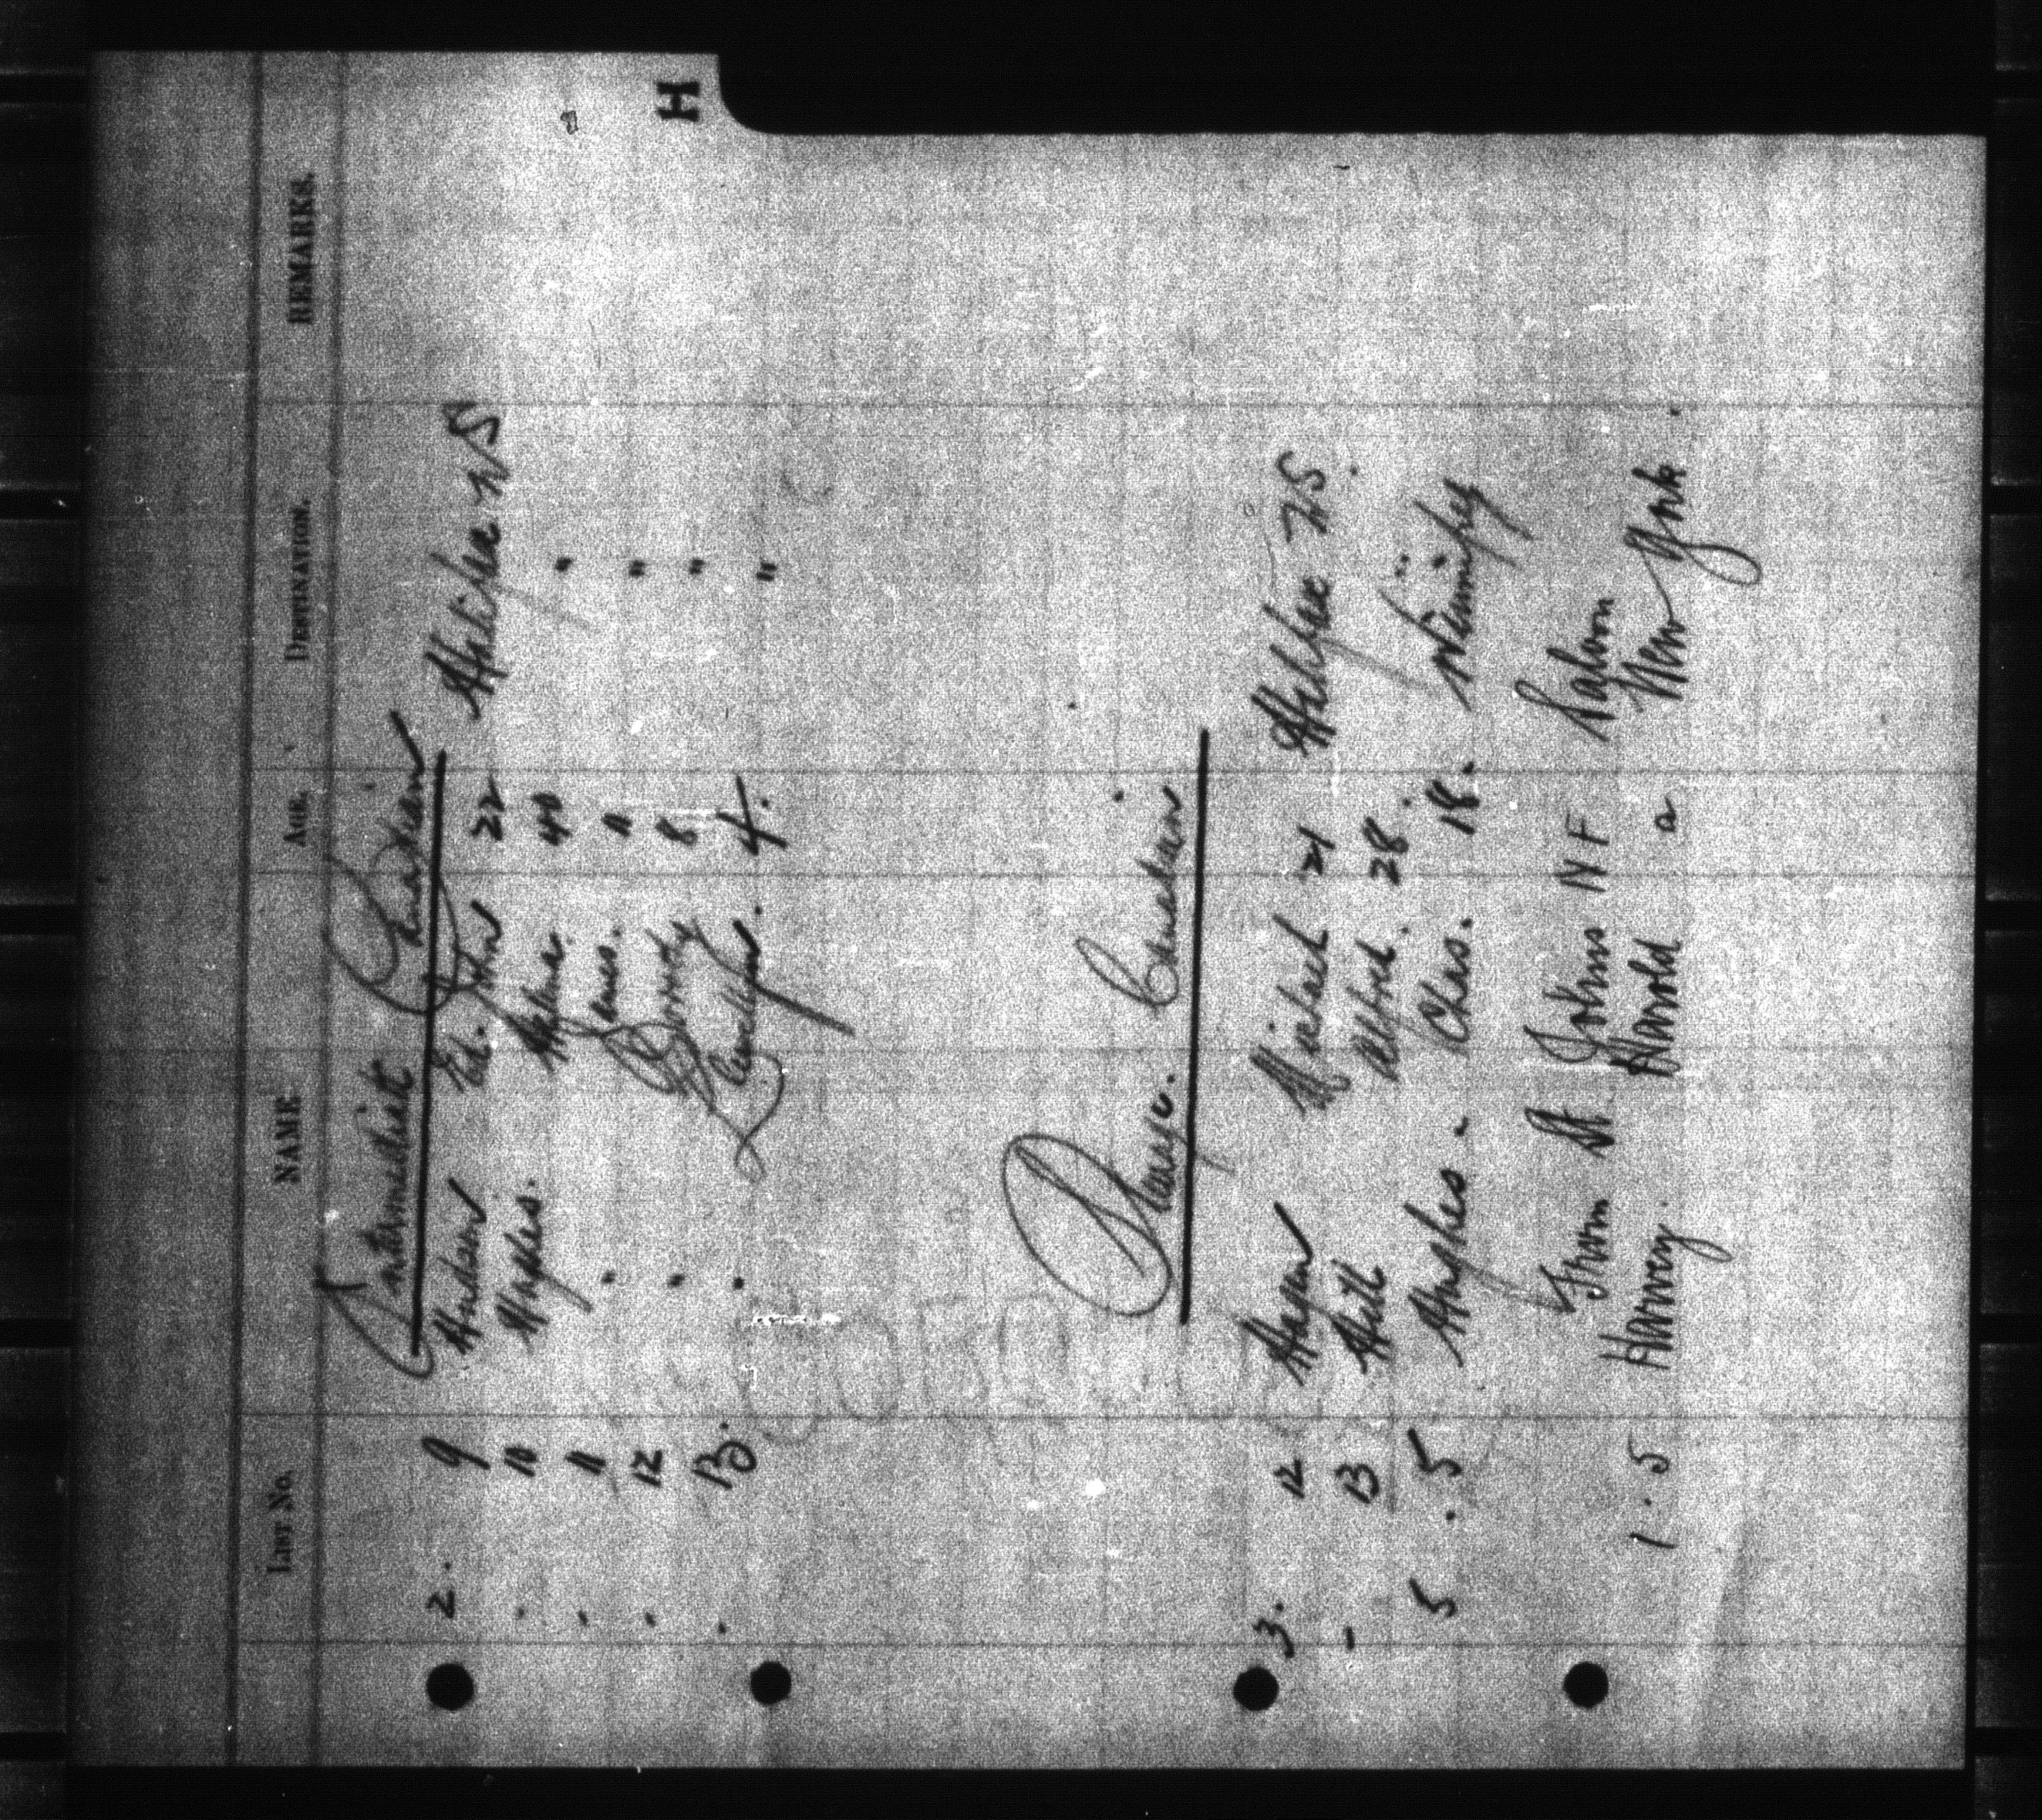 H
LIST NO. NAME AGE. DESTINATION. REMARKS.
Intermediate Canadian
2. 9 Hudson Ed. John 22 Halifax NS
" 10 Hughes. Helena. 40 "
" 11 " James. 11 "
" 12 " Dorothy 8 "
" 13. " Llewellyn. 4. "
Steerage. Canadian
3. 12 Hagen Michael 21 Halifax NS.
" 13 Hill Alfred. 28. "
5 . 5 Hughes. Chas. 18. Winnipeg
From St. Johns NF Saloon
1 . 5 Harvey. Harold a New York.